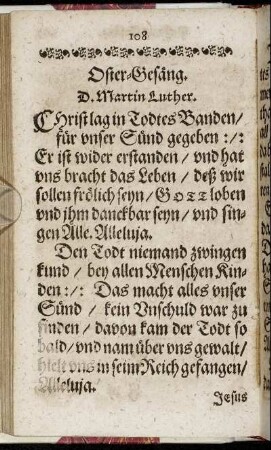 108
Oster-Gesäng.
D. Martin Luther.
CHrist lag in Todtes Banden/
für vnser Sünd gegeben :/:
Er ist wider erstanden / vnd hat
vns bracht das Leben / deß wir
sollen frölich seyn / GOTT loben
vnd jhm danckbar seyn / vnd sin-
gen Alle. Alleluja.
Den Todt niemand zwingen
kund / bey allen Menschen Kin-
den :/: Das macht alles vnser
Sünd / kein Vnschuld war zu
finden / davon kam der Todt so
bald / vnd nam über vns gewalt/
hielt vns in seim Reich gefangen/
Alleluja.
Jesus